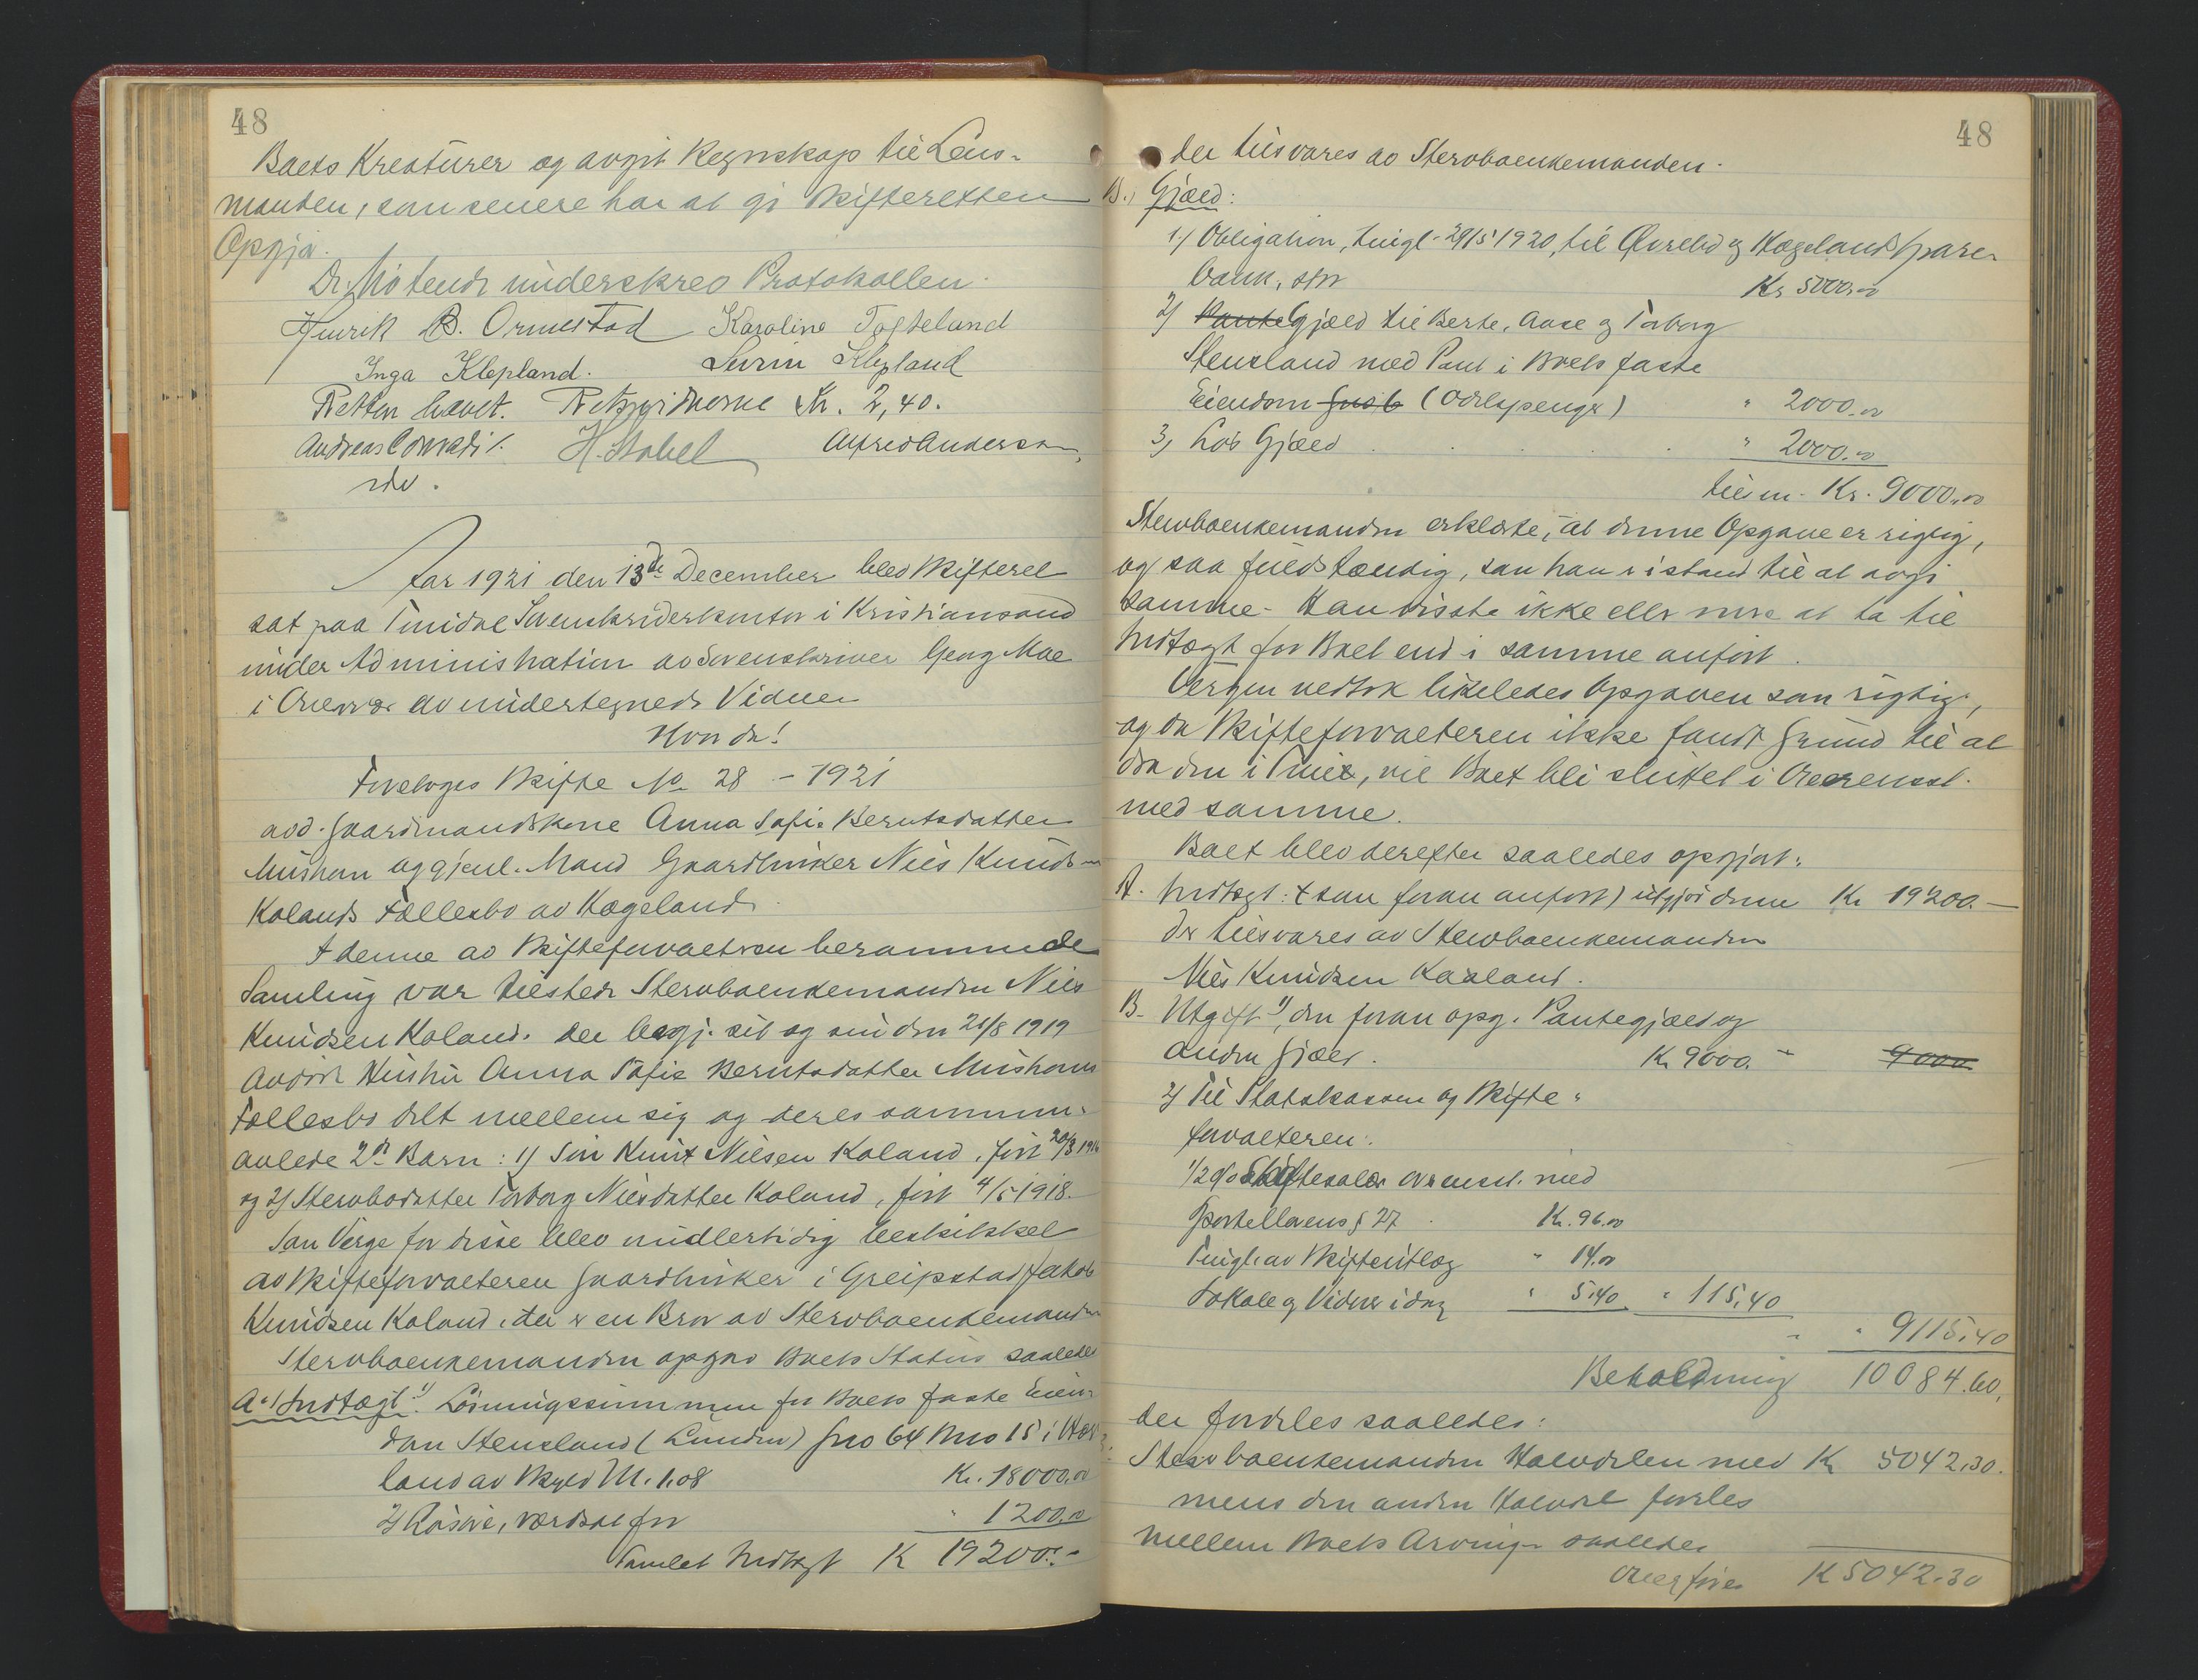 48
Boets Kreaturer og avgit Regnskap til Lens-
manden, som senere har at gi Skifteretten
Opgjør.
De Møtende underskrev Protokollen.
Henrik B. Ormestad Karoline Togteland
Inga Klepland. Klepland
Retten hævet. Retsvidnerne Kr. 2,40.
Andreas Conradi. H. Stabel Alfred Andersen
Aar 1921 den 13de December blev Skifteret
sat paa Sorenskriverkontor i Kristiansand
under Administration av Sorenskriver Georg Moe
i Overvær av undertegnede Vidner
Hvorda!
Foretoges Skifte No 28 - 1921
avd. Gaardmandskone Anna Sofie Berntsdatter
og gjenl. Mand Gaardbruker Nils Knudsen
Kolands Fællesbo av Hægeland.
I denne av Skifteforvalteren berammede
Samling var tilstede Stervboenkemanden Nils
Knudsen Koland. der begj. sit og sin den 21/8 1919
avdøde Hustru Anna Sofie Berntsdatter
Fællesbo delt mellem sig og deres sammen-
avlede 2de Barn: 1) Søn Knut Nilsen Koland, født 20/8 1916
og 2) Stervbodatter Torborg Nilsdatter Koland, født 4/5 1918.
Som Verge for disse blev midlertidig beskikket
av Skifteforvalteren Gaardbruker i Greipstad Jakob
Knudsen Koland, der er en Bror av Stervboenkemanden
Stervboenkemanden opgav Boets Status saaledes
A.) Indtægt: 1) Løsningssummen for Boets faste Eien-
dom Stensland (Lunden) Gno 64 Bno 15 i Hæge-
land av Skyld M. 1.08 Kr. 18000,00
2) Løsøre, værdsat for " 1200,00
Samlet Indtægt K 19200.-
48
der tilsvares av Stervboenkemanden.
B., Gjæld:
1.) Obligation, tingl. 29/5 1920, til Øvrebø og Hægeland Spare-
bank, stor Kr 5000,00
2) Pante Gjæld til Berte, Aase og Torborg
Stensland med Pant i Boets faste
Eiendom Gno 6 (Odelspenger) " 2000.00
3, Løs Gjæld . . . . . " 2000.00
tilsm. Kr. 9000,00
Stervboenkemanden erklærte, at denne Opgave er rigtig,
og saa fuldstændig, som han er istand til at avgi
samme. Han visste ikke eller mere at ta til
Indtægt for Boet end i samme anført.
Vergen vedtok likeledes Opgaven som rigtig,
og da Skifteforvalteren ikke fandt Grund til at
dra den i Tvil, vil Boet bli sluttet i Overensst.
med samme.
Boet blev derefter saaledes opgjort:
A. Indtægt: (som foran anført) utgjør denne Kr 19200.-
der tilsvares av Stervboenkemanden
Nils Knudsen Kaaland.
B. Utgift 1), den foran opg. Pantegjæld og
anden Gjæld. Kr 9000.- 9000
2) Til Statskassen og Skifte-
forvalteren:
1/2 % Skiftesalær overensst. med
Sportellovens § 27 . Kr. 96.00
Tingl. av Skifteutlæg " 14.00
Lokale og Vidner idag " 5,40 " 115,40
" " 9115,40
Beholdning 10084.60,
der fordeles saaledes:
Stervboenkemanden Halvdelen med Kr 5042,30.
mens den anden Halvdel fordeles
mellem Boets Arvinger saaledes
Overføres K 5042.30